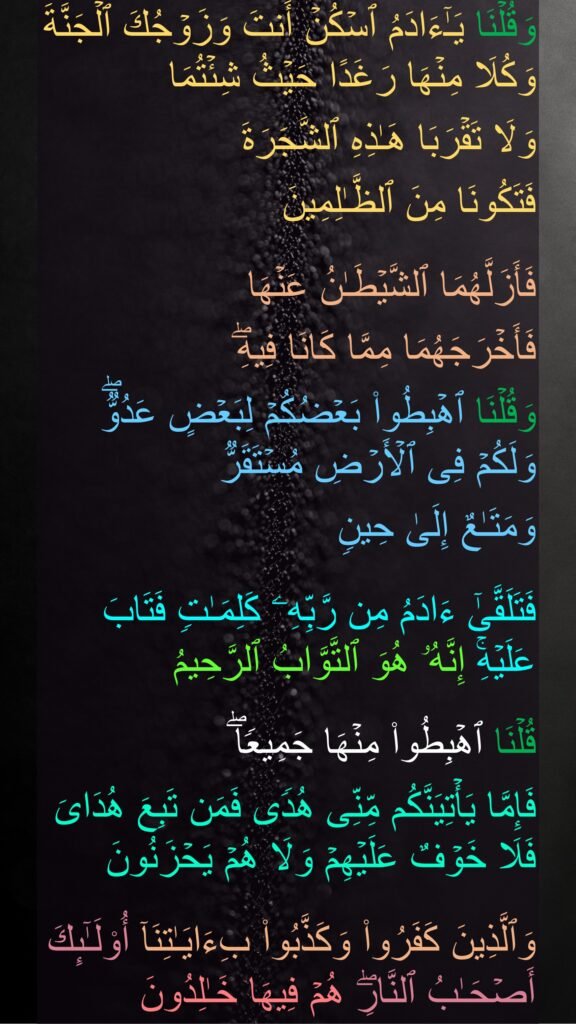 وَقُلۡنَا يَـٰٓـَٔادَمُ ٱسۡكُنۡ أَنتَ وَزَوۡجُكَ ٱلۡجَنَّةَ
وَكُلَا مِنۡهَا رَغَدًا حَيۡثُ شِئۡتُمَا
وَلَا تَقۡرَبَا هَـٰذِهِ ٱلشَّجَرَةَ
فَتَكُونَا مِنَ ٱلظَّـٰلِمِينَ
فَأَزَلَّهُمَا ٱلشَّيۡطَـٰنُ عَنۡهَا
فَأَخۡرَجَهُمَا مِمَّا كَانَا فِيهِۖ
وَقُلۡنَا ٱهۡبِطُواْ بَعۡضُكُمۡ لِبَعۡضٍ عَدُوࣱّۖ
وَلَكُمۡ فِى ٱلۡأَرۡضِ مُسۡتَقَرࣱّ
وَمَتَـٰعٌ إِلَىٰ حِينࣲ
فَتَلَقَّىٰٓ ءَادَمُ مِن رَّبِّهِۦ كَلِمَـٰتࣲ فَتَابَ
عَلَيۡهِۚ إِنَّهُۥ هُوَ ٱلتَّوَّابُ ٱلرَّحِيمُ
قُلۡنَا ٱهۡبِطُواْ مِنۡهَا جَمِيعࣰاۖ
فَإِمَّا يَأۡتِيَنَّكُم مِّنِّى هُدࣰى فَمَن تَبِعَ هُدَاىَ
فَلَا خَوۡفٌ عَلَيۡهِمۡ وَلَا هُمۡ يَحۡزَنُونَ
وَٱلَّذِينَ كَفَرُواْ وَكَذَّبُواْ بِـَٔايَـٰتِنَآ أُوْلَـٰٓئِكَ
أَصۡحَـٰبُ ٱلنَّارِۖ هُمۡ فِيهَا خَـٰلِدُونَ